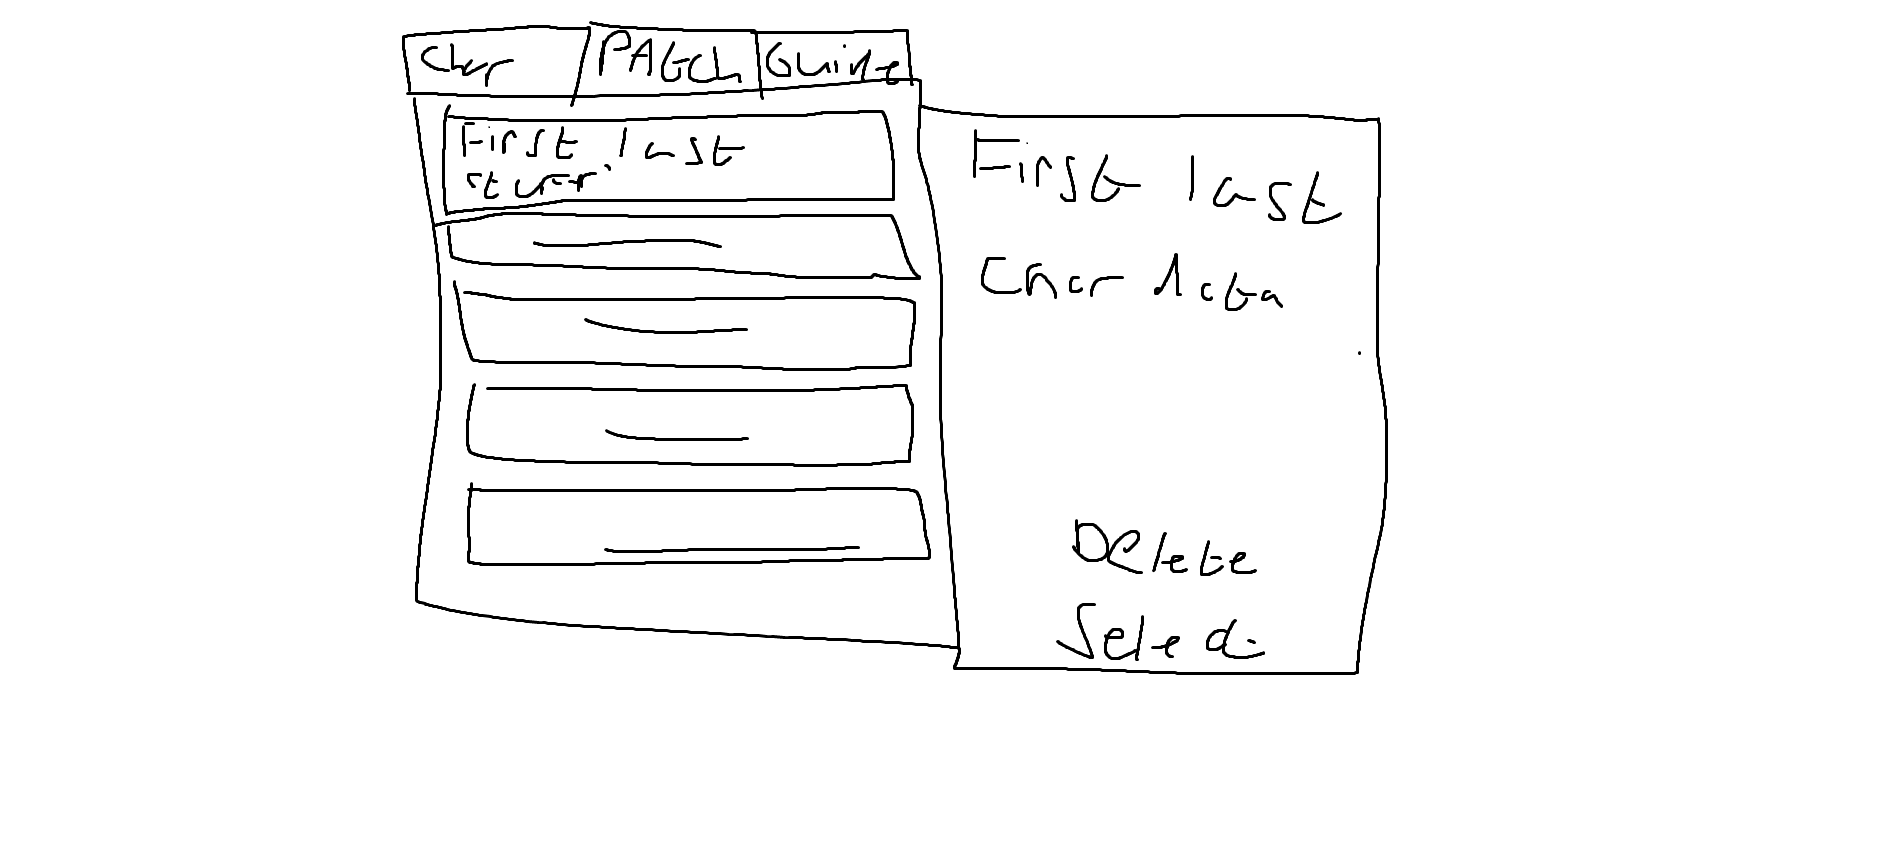 Char PAtCh Guide
First last
First last
Char data
Delete
Select